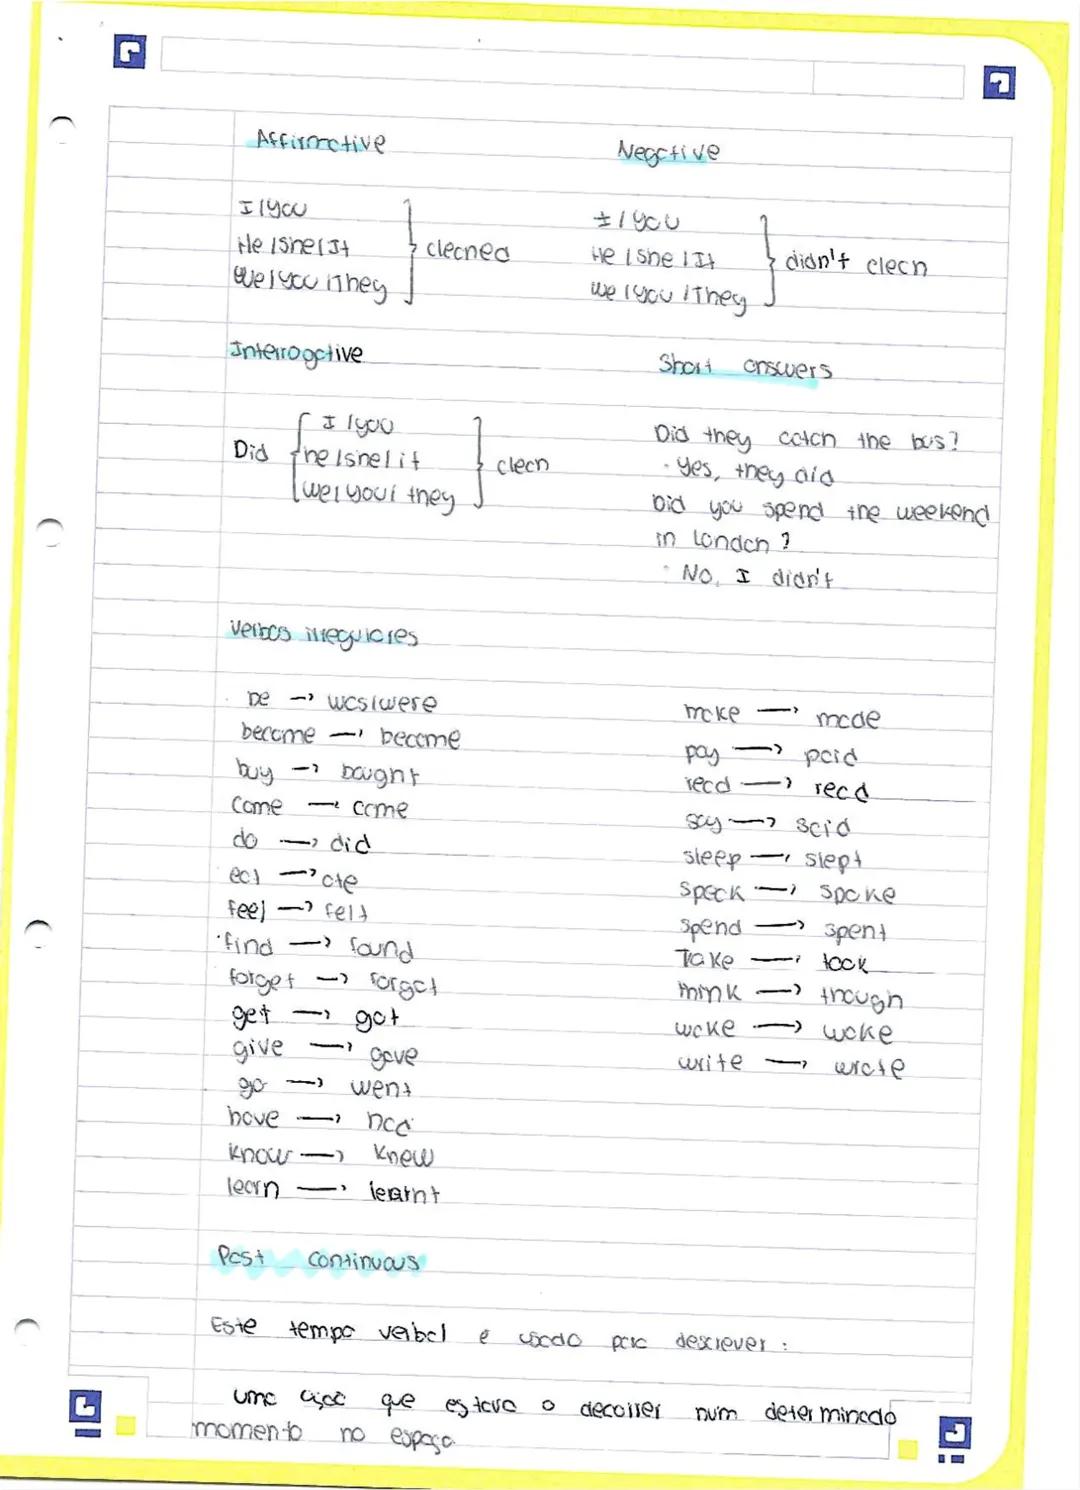 Affirmative
Negative
I/you
He/She/It
We/you/They
cleaned
I/you
He/She/It
We/you/They
didn't clean
Interrogative
Short answers
Did
I/you
he/she/it
we/you/they
clean
Did they catch the bus?
· Yes, they did
Did you spend the weekend
in London?
· No, I didn't
Verbos irregulares
be → was/were
become → became
buy → bought
come → came
do → did
eat → ate
feel → felt
find → found
forget → forgot
get → got
give → gave
go → went
have → had
know → knew
learn → learnt
make → made
pay → paid
read → read
say → said
sleep → slept
speak → spoke
spend → spent
Take → took
think → though
wake → woke
write → wrote
Past continuous
Este tempo verbal é usado para descrever:
uma ação que estava o decorrer num determinado
momento no espaço